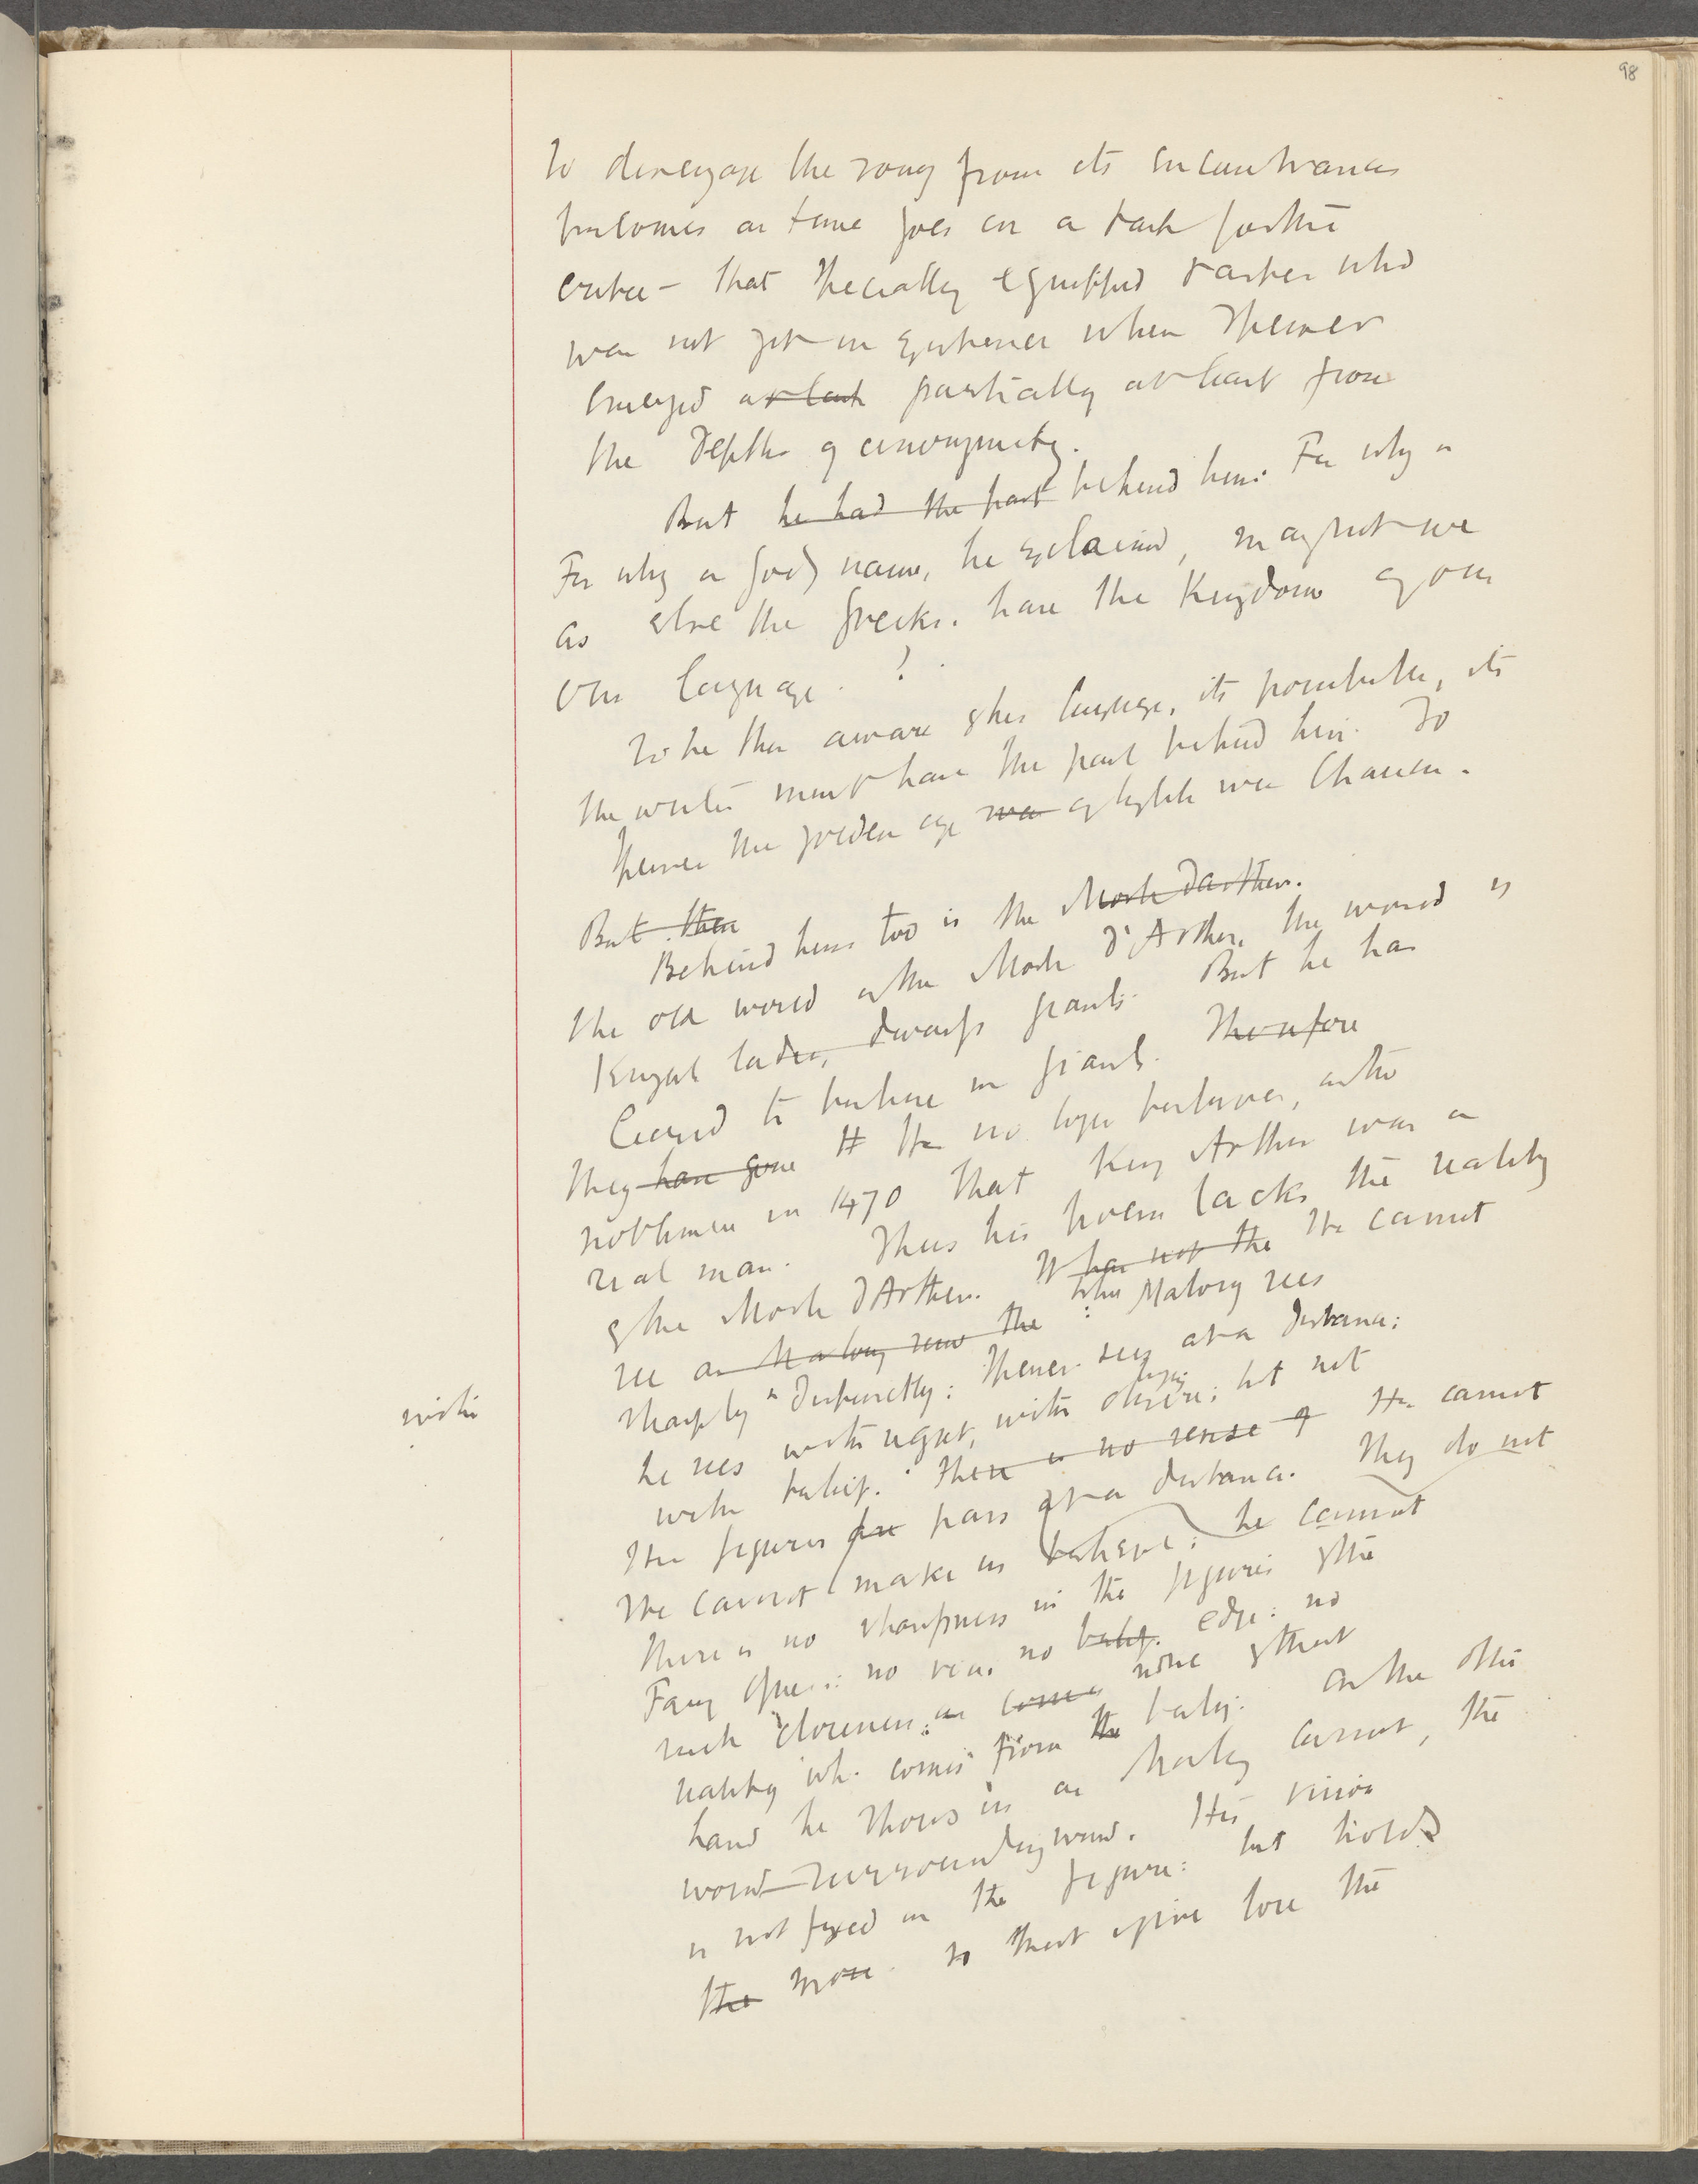 98
to disengage the song from its encumbrances
becomes as time goes on a task for the
critic - that specially equipped taster who
was not yet in existence when Spenser
emerged at last partially at least from
the depths of anonymity.
But he had the past behind him. For why a
For why a God's name, he exclaimed, may not we
as else the Greeks. have the Kingdom of our
own language. ?
To be thus aware of his language, its possibilities, its
the writer must have the past behind him. To
Spenser the golden age was of English was Chaucer.
But then
Behind him too is the Morte Darthur.
The old world of the Morte d'Arthur, the world of
Knights ladies, dwarfs giants. But he has
ceased to believe in giants. Therefore
they have gone He no longer believes, as the
nobleman in 1470 that King Arthur was a
real man. Thus his poem lacks the reality
of the Morte d'Arthur. What not the He cannot
see as Malory saw the : Malory sees
sharply & distinctly: Spenser sees at a distance:
with
he sees with regret, with desire; but not
with belief. There is no sense of He cannot
His figures are pass at a distance. They do not
He cannot make us believe: he cannot
There is no sharpness in the figures of the
Fairy Queen: no no belief. edge: no
such closeness: as comes none of that
reality wh. comes from the belief. On the other
hand he shows us as Malory cannot, the
world surrounding world. His vision
is not fixed on the figure: but holds
the more. so that if we lose the